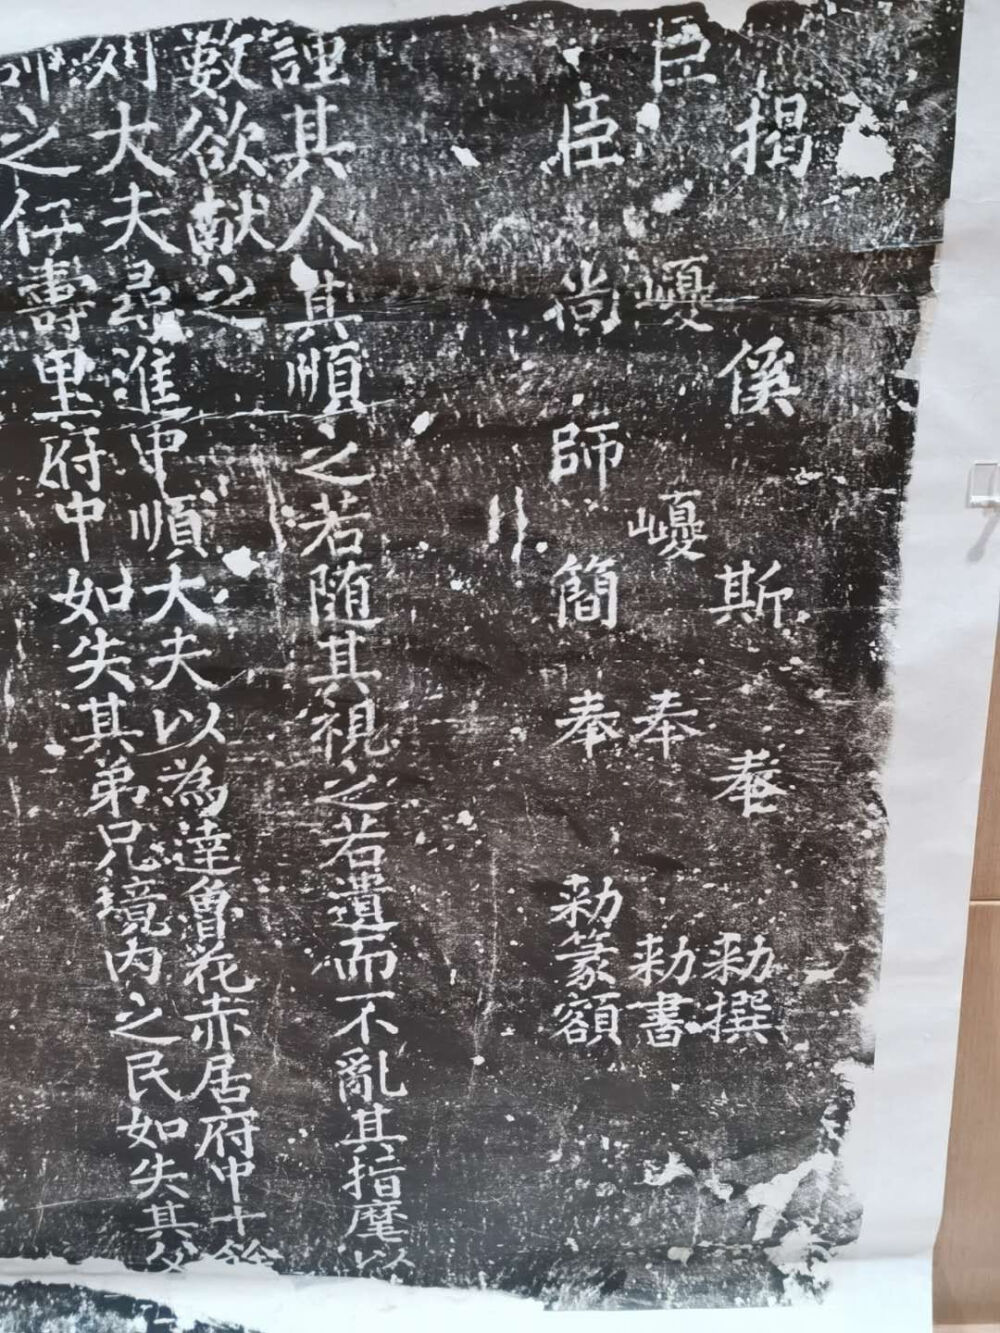 揭傒斯奉勑撰
臣巙巙奉勑書
臣尚師簡奉勑篆額
諲其人其順之若随其視之若遺而不亂其指麾以
數欲献之
列大夫尋進中順大夫以為達魯花赤居府中十餘
之任壽里府中如失其弟兄境内之民如失其父